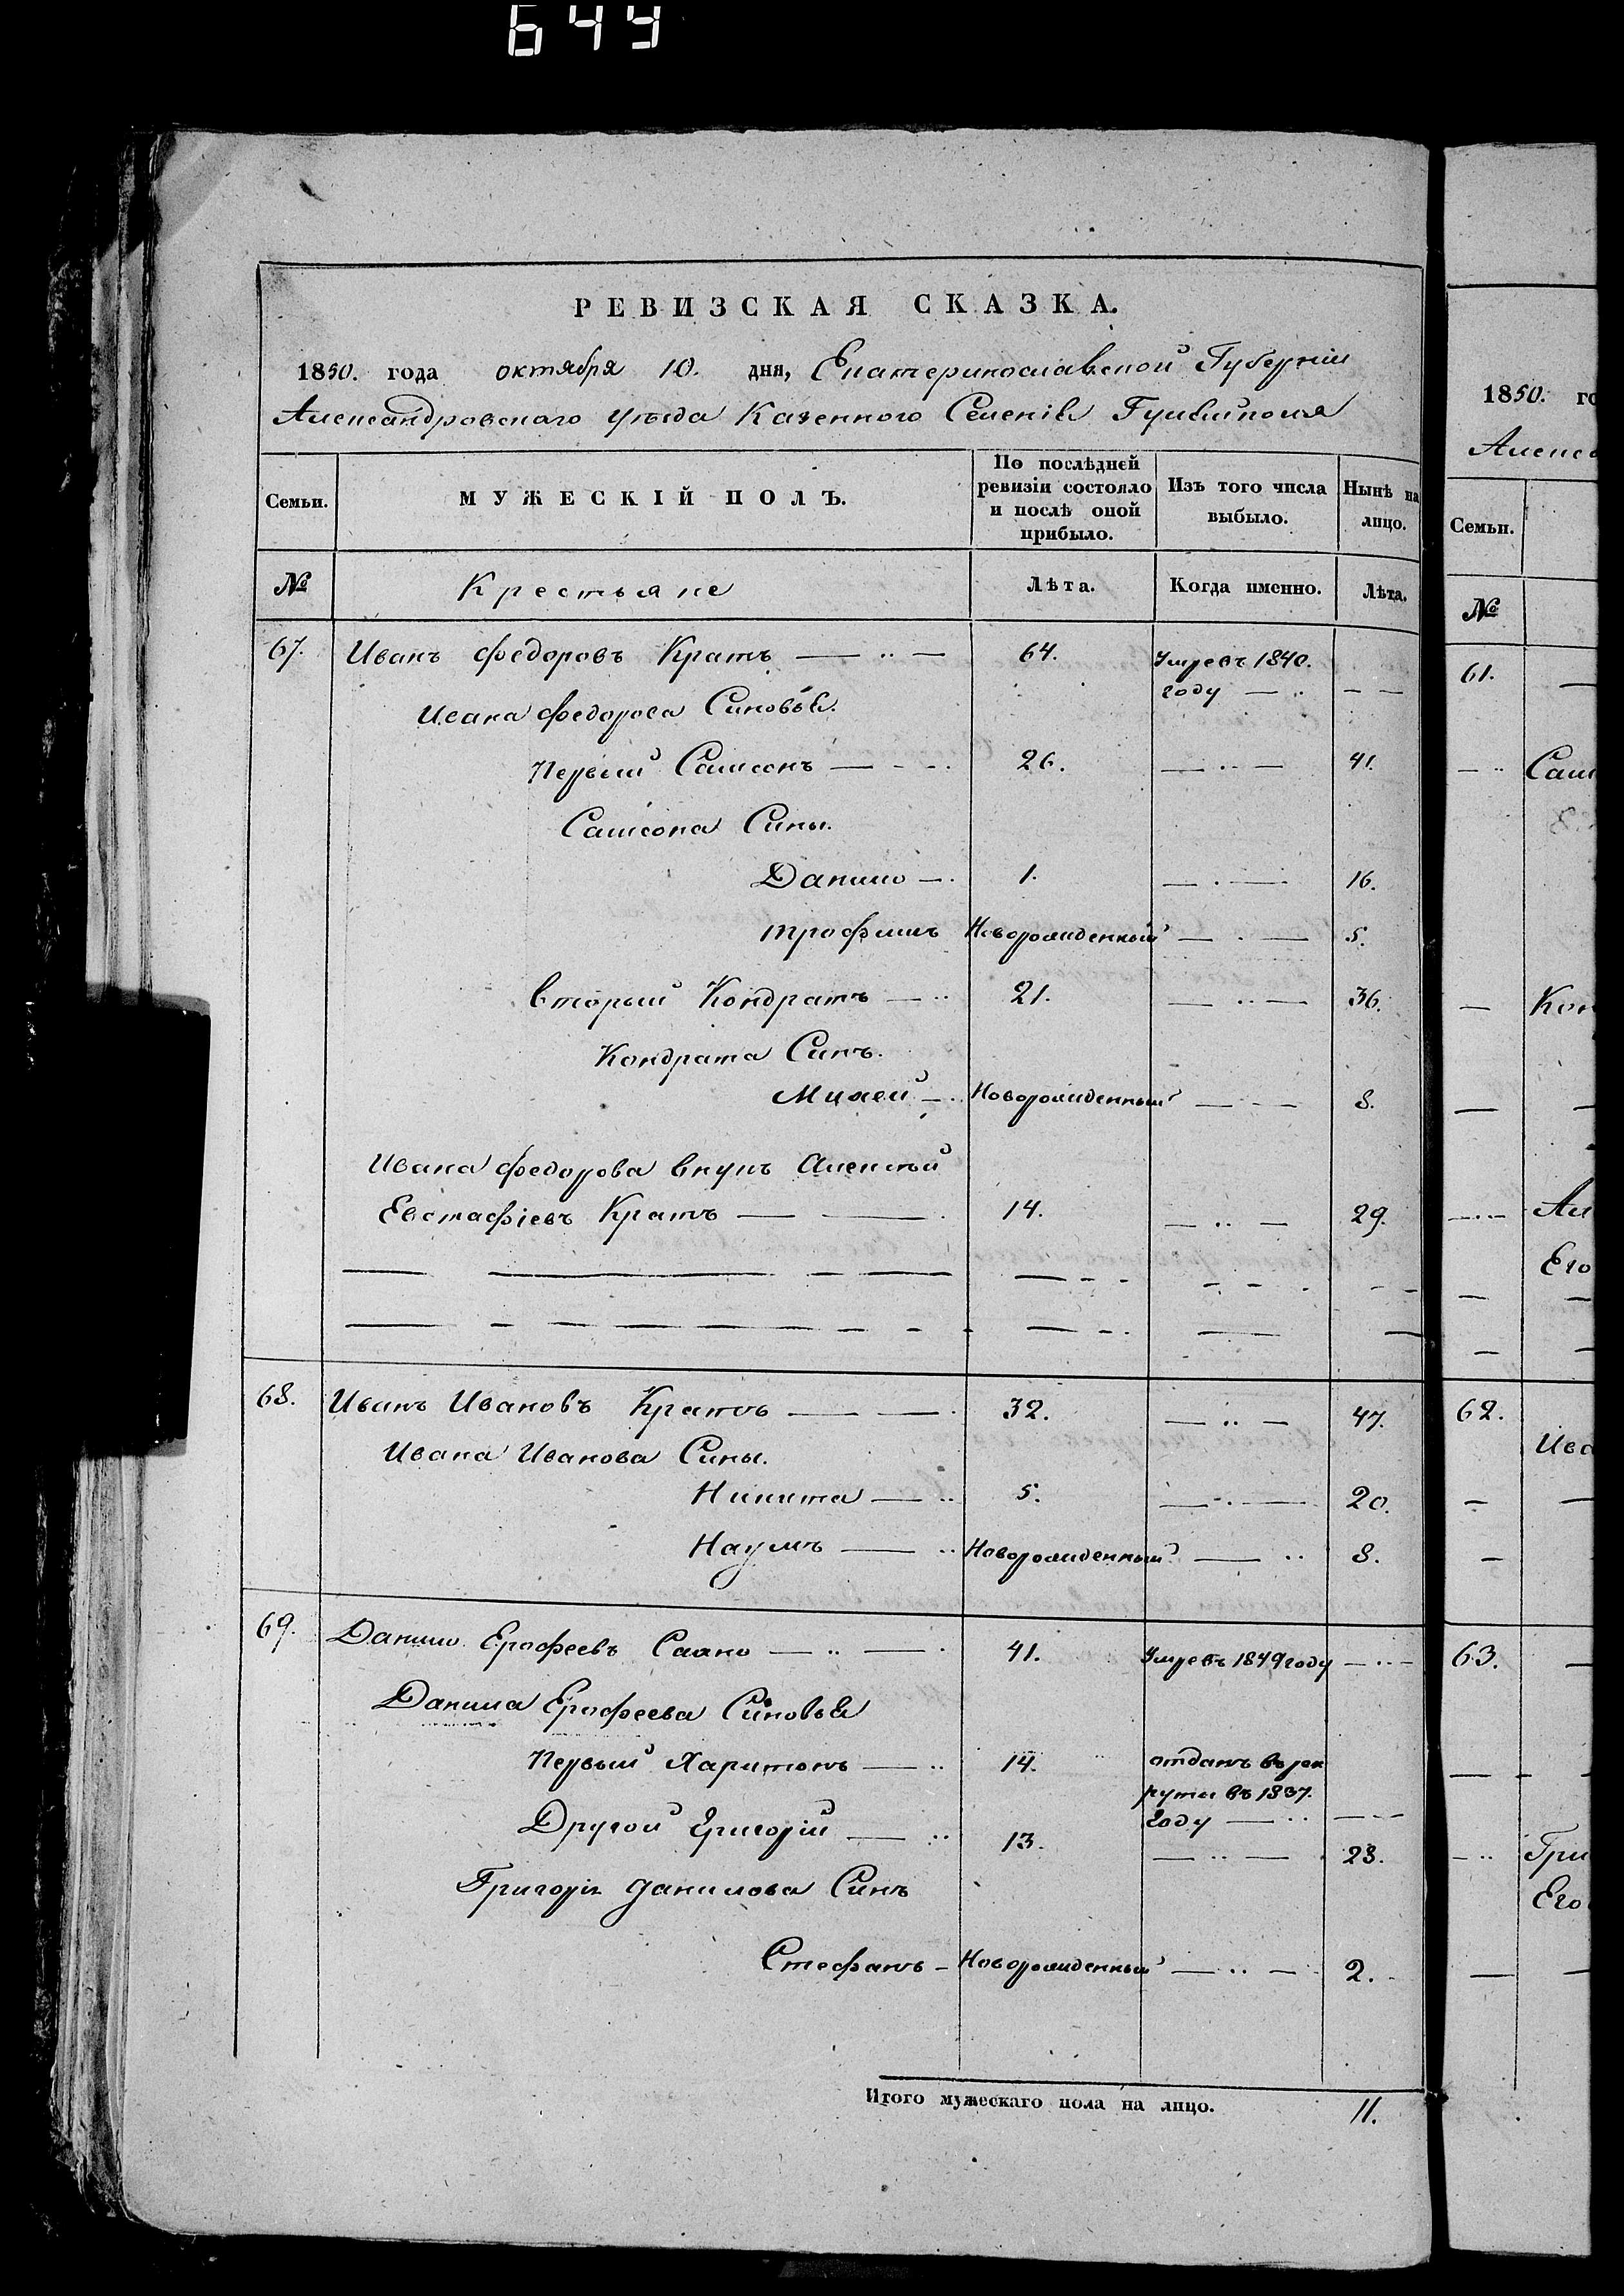 644
РЕВИЗСКАЯ СКАЗКА.
1850. года октября 10. дня, Екатеринославской Губерніи
Александровскаго уѣзда Казенного Селенія Гуляйполя
Семьи.
МУЖЕСКІЙ ПОЛЪ.
По послѣдней ревизіи состояло и послѣ оной прибыло.
Изъ того числа выбыло.
Нынѣ на лицо.
№ Крестьяне Лѣта. Когда именно. Лѣта.
67. Иванъ Федоровъ Кратъ 64. Умревъ 1840. году
Ивана Федорова Синовья.
Первый Самсонъ 26. 41.
Самсона Сины.
Данило 1. 16.
Трофимъ Новорожденный 5.
Вторый Кондратъ 21. 36.
Кондрата Синъ.
Михей Новорожденный 8.
Ивана Федорова внукъ Алексѣй
Евстафіевъ Кратъ 14. 29.
68. Иванъ Ивановъ Кратъ 32. 47.
Ивана Иванова Сины.
Никита 5. 20.
Наумъ Новорожденный 8.
69. Данило Ерофеевъ 41. Умревъ 1849 году
Данила Ерофеева Синовья
Первый Харитонъ 14. отданъ въ рек
рути въ 1837.
году
Другой Григорій 13. 28.
Григорія Данилова Синъ
Стефанъ Новорожденный 2.
Итого мужескаго пола на лицо. 11.
1850. го
Алекса
Семьи.
№
61.
Самс
Кон
Ал
Его
62.
Ива
63.
Гри
Его